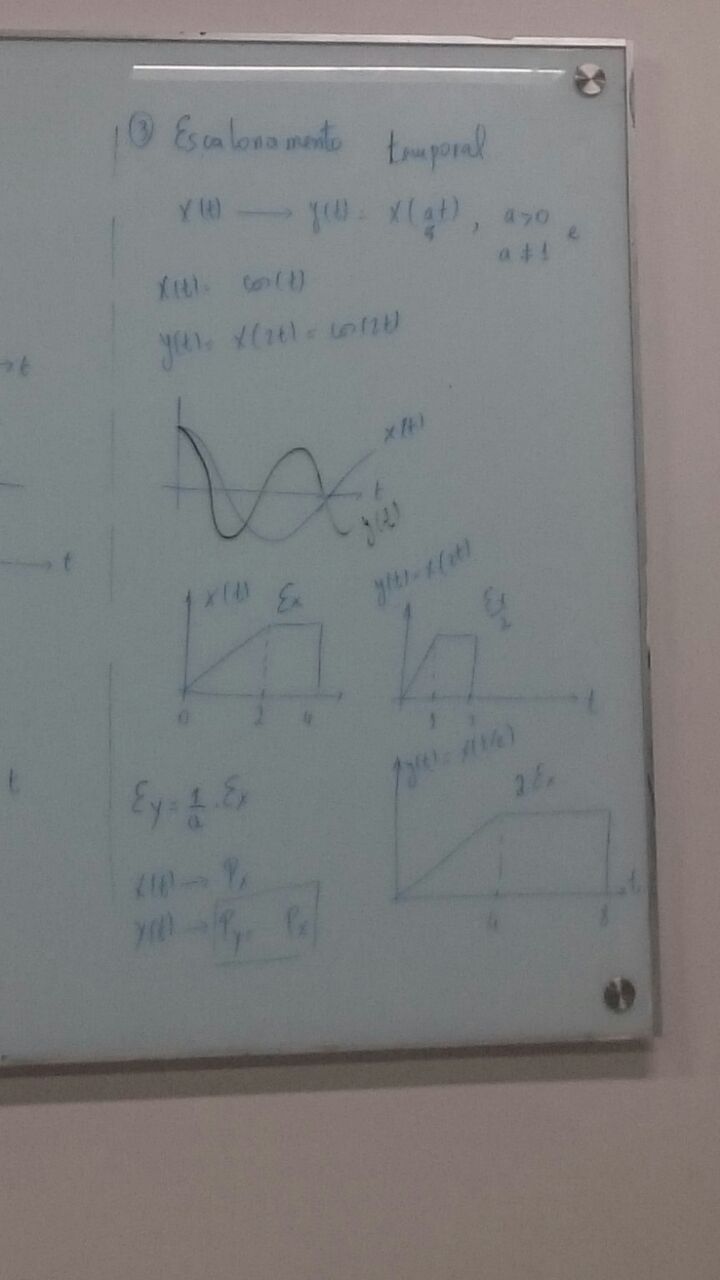 ③ Escalonamento temporal
x(t) → y(t) = x(at), a>0 e
a≠1
x(t) = cos(t)
y(t) = x(2t) = cos(2t)
x(t)
t
y(t)
→t
t
x(t) Ɛx
0 2 4
y(t) = x(2t)
Ɛx/2
1 2 t
t
y(t) = x(t/2)
2Ɛx
4 8 t
Ɛy = 1/a . Ɛx
x(t) → Px
y(t) → Py = Px